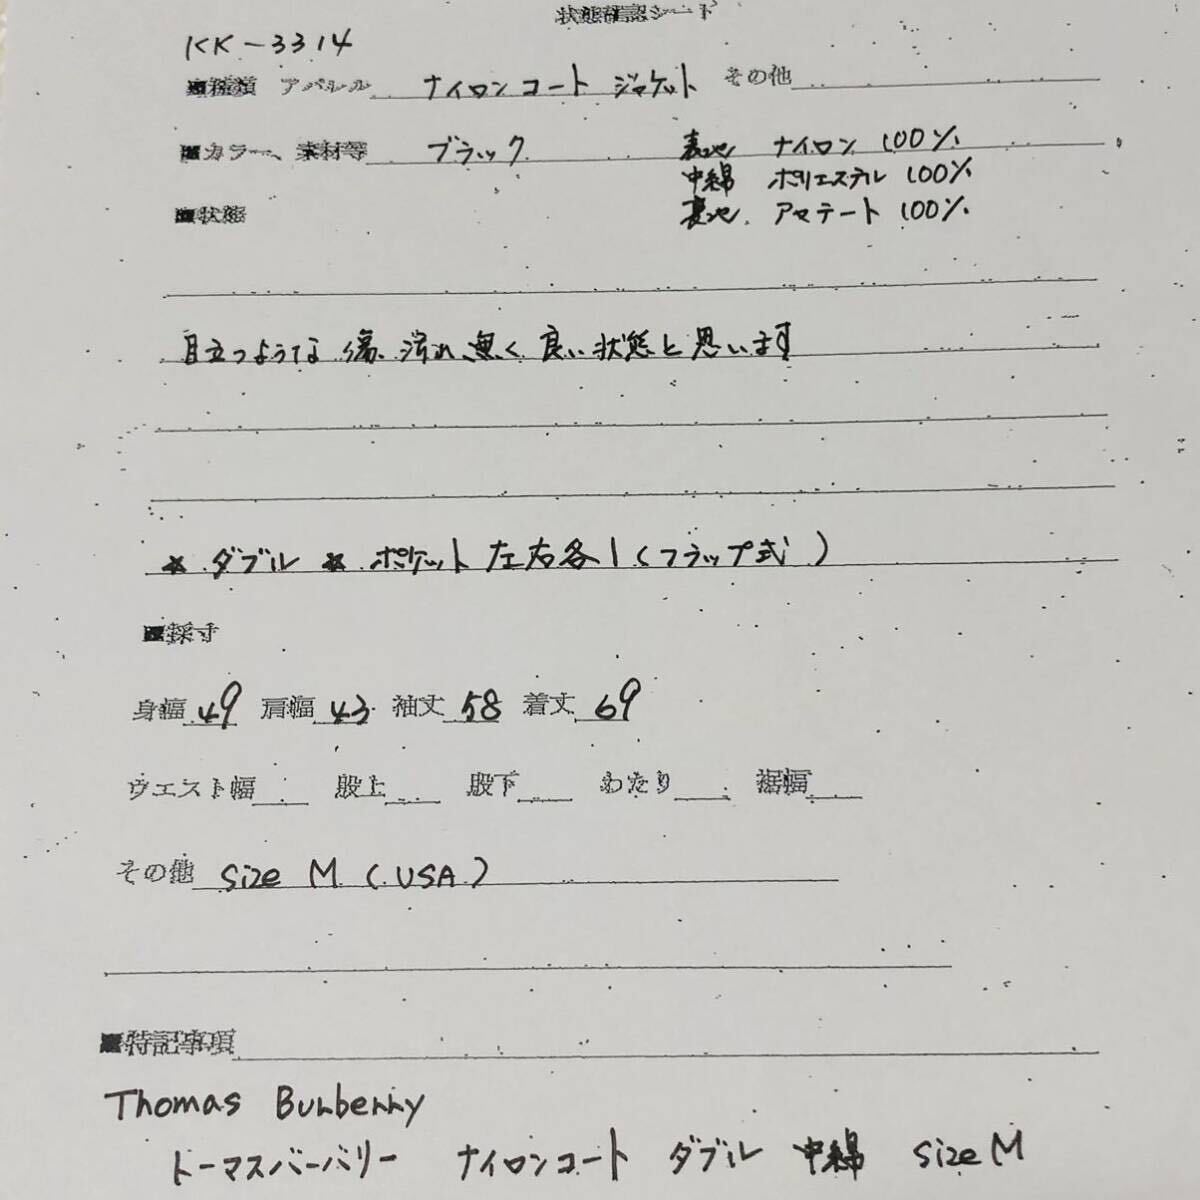 状態確認シート
KK-3314
■種類 アパレル ナイロンコート ジャケット その他
■カラー、素材等 ブラック 表地 ナイロン 100%
中綿 ポリエステル 100%
■状態 裏地 アセテート 100%
目立つような傷、汚れ、無く良い状態と思います
☆ ダブル ☆ ポケット左右各1(フラップ式)
■採寸
身幅 49 肩幅 43 袖丈 58 着丈 69
ウエスト幅 股上 股下 わたり 裾幅
その他 size M (USA)
■特記事項
Thomas Burberry
トーマスバーバリー ナイロンコート ダブル 中綿 size M